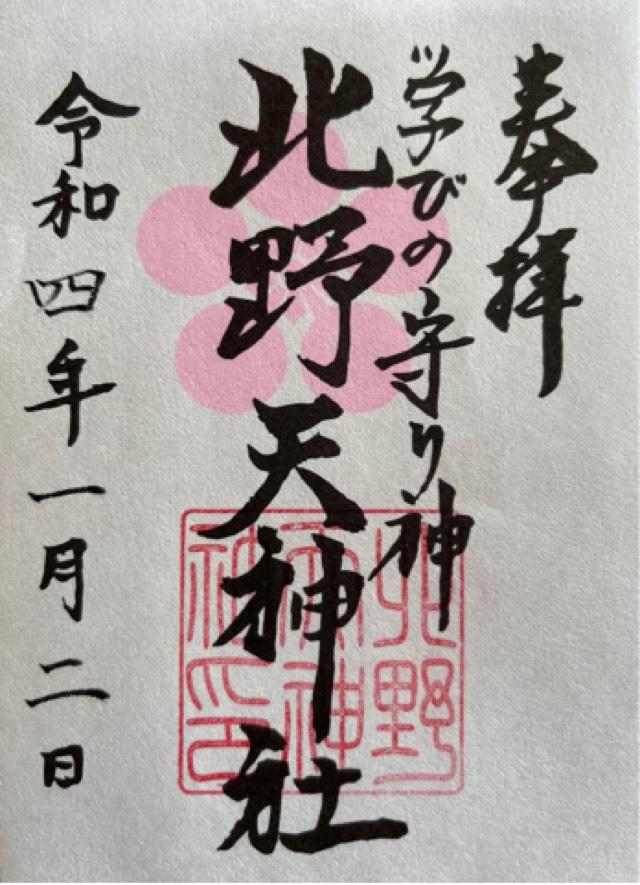 奉拝
学びの守り神
北野天神社
令和四年一月二日
北野
天神
社印